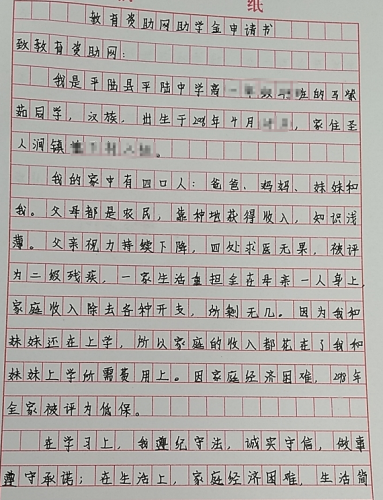 纸
教育资助网助学金申请书
致教育资助网:
我是平陆县平陆中学高一年级 班的
茹同学，汉族，出生于 年 月 ，家住圣
人涧镇 。
我的家中有四口人：爸爸、妈妈、妹妹和
我。父母都是农民，靠种地获得收入，知识浅
薄。父亲视力持续下降，四处求医无果，被评
为二级残疾，一家生活重担全在母亲一人身上，
家庭收入除去各种开支，所剩无几。因为我和
妹妹还在上学，所以家庭的收入都花在了我和
妹妹上学所需费用上。因家庭经济困难， 年
全家被评为低保。
在学习上，我遵纪守法，诚实守信，做事
遵守承诺；在生活上，家庭经济困难，生活简